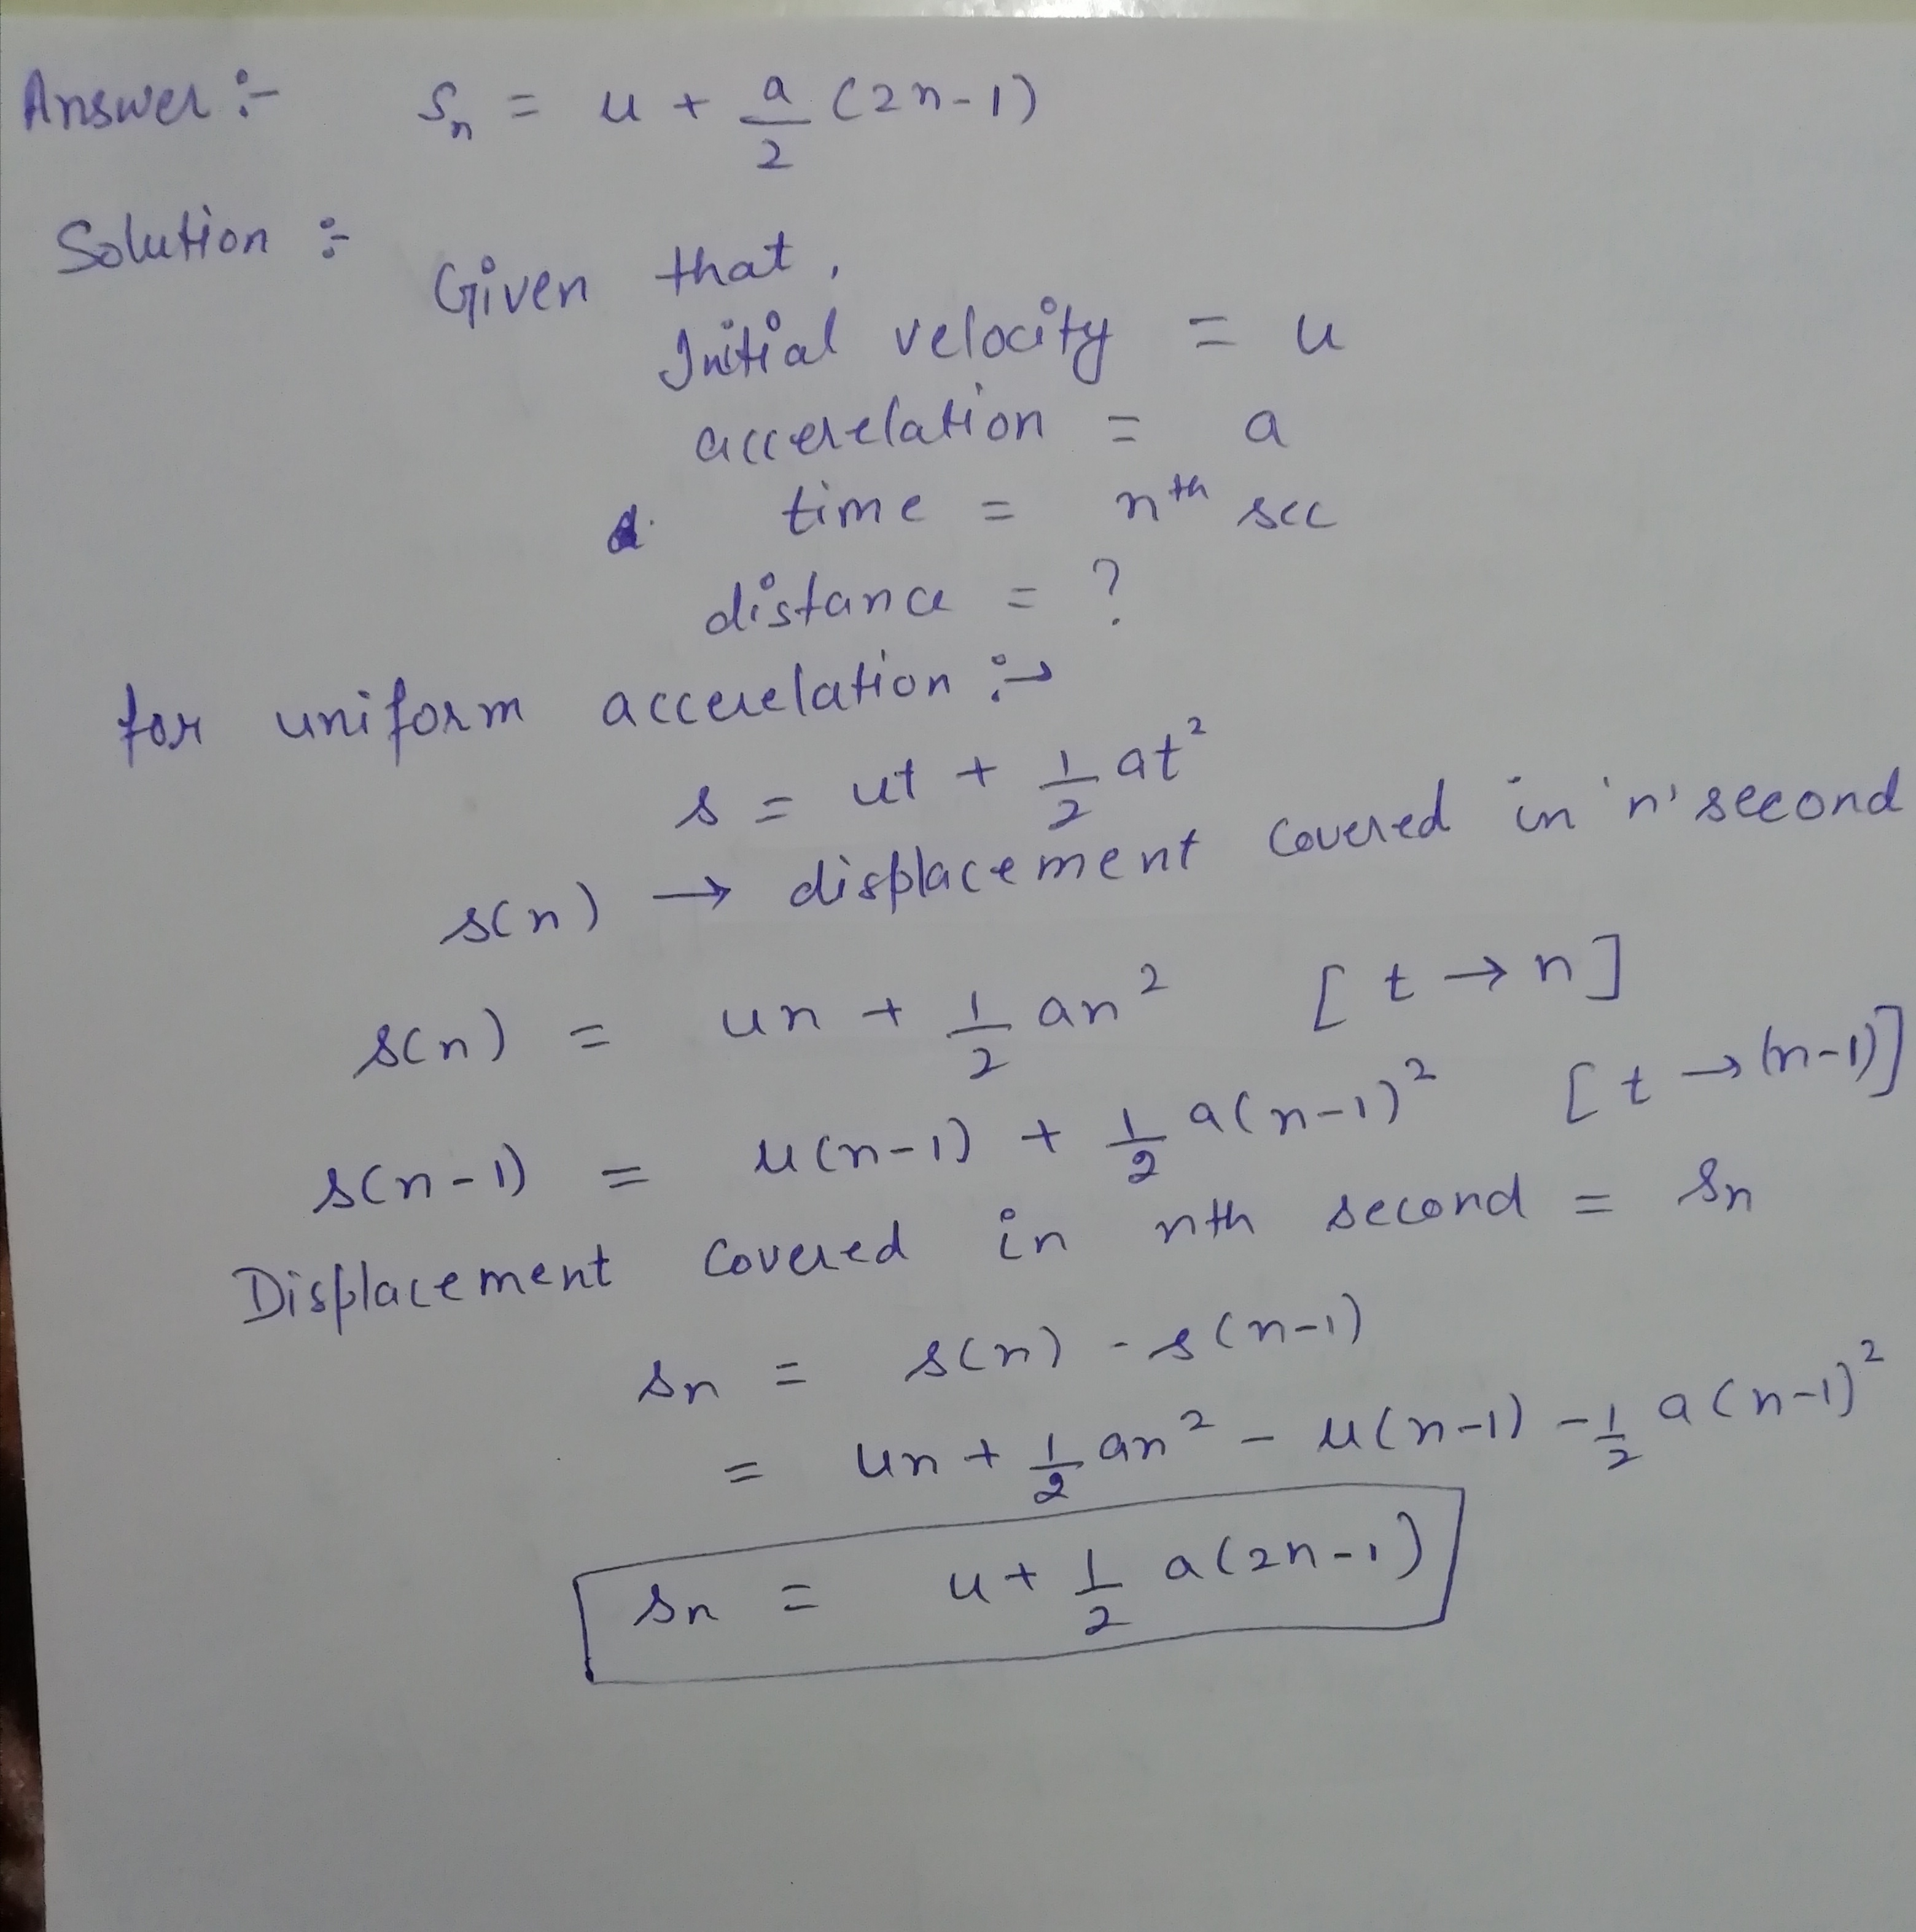 Answer :- Sn = u + a/2 (2n-1)
Solution :-
Given that,
Initial velocity = u
accerelation = a
time = nth sec
distance = ?
for uniform accerelation :-
s = ut + 1/2 at²
s(n) → displacement covered in 'n' second
s(n) = un + 1/2 an² [t → n]
s(n-1) = u(n-1) + 1/2 a(n-1)² [t → (n-1)]
Displacement covered in nth second = sn
sn = s(n) - s(n-1)
= un + 1/2 an² - u(n-1) - 1/2 a(n-1)²
sn = u + 1/2 a(2n-1)